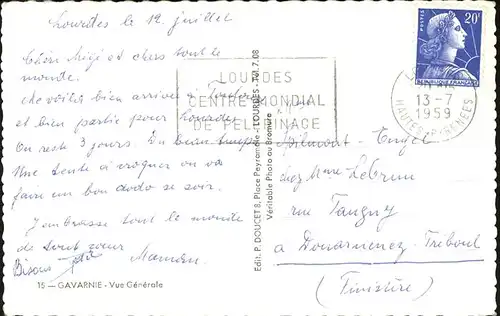 Lourdes le 12 juillet
Chère Mizi et chers tout le
monde.
bien arrivée à
et bien partie pour Lourdes
On reste 3 jours. Du beau temps
Une tente à croquer on va
faire un bon dodo ce soir.
J'embrasse tout le monde
de tout cœur
Bisous Maman.
15 — GAVARNIE - Vue Générale
Edit. P. DOUCET 8, Place Peyramale - LOURDES - Tél. 7.08
Véritable Photo au Bromure
LOURDES
CENTRE MONDIAL
DE PELERINAGE
POSTES
20F
REPUBLIQUE FRANÇAISE
LOURDES
13-7
1959
HAUTES-PYRENEES
chez Mme Lebrun
rue Tanguy
à Douarnenez-Tréboul
(Finistère)